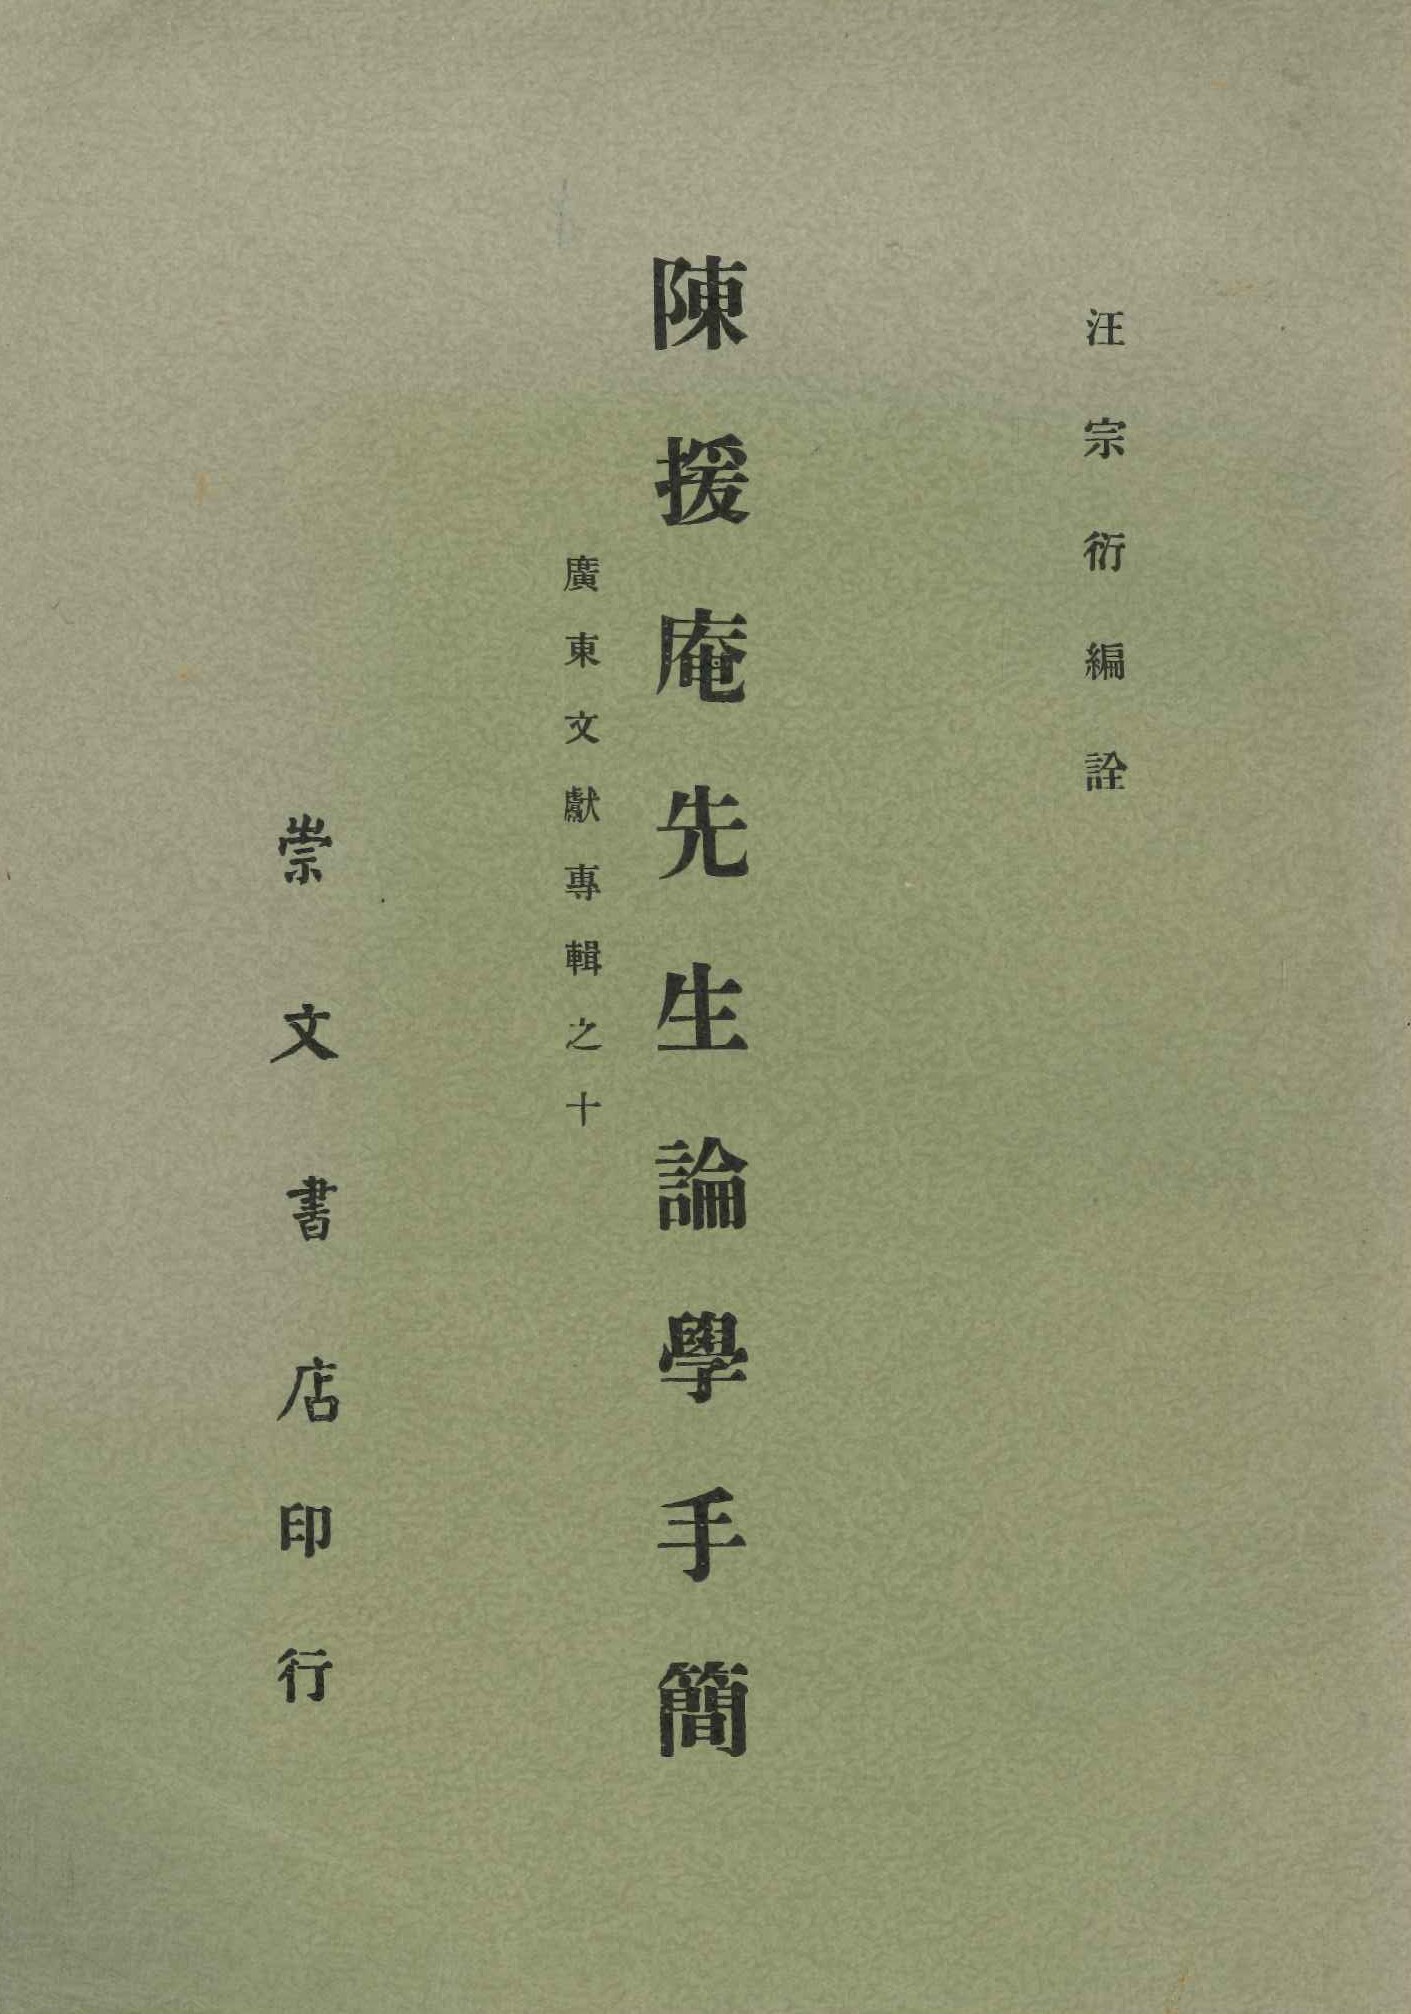 汪宗衍編詮
陳援庵先生論學手簡
廣東文獻專輯之十
崇文書店印行